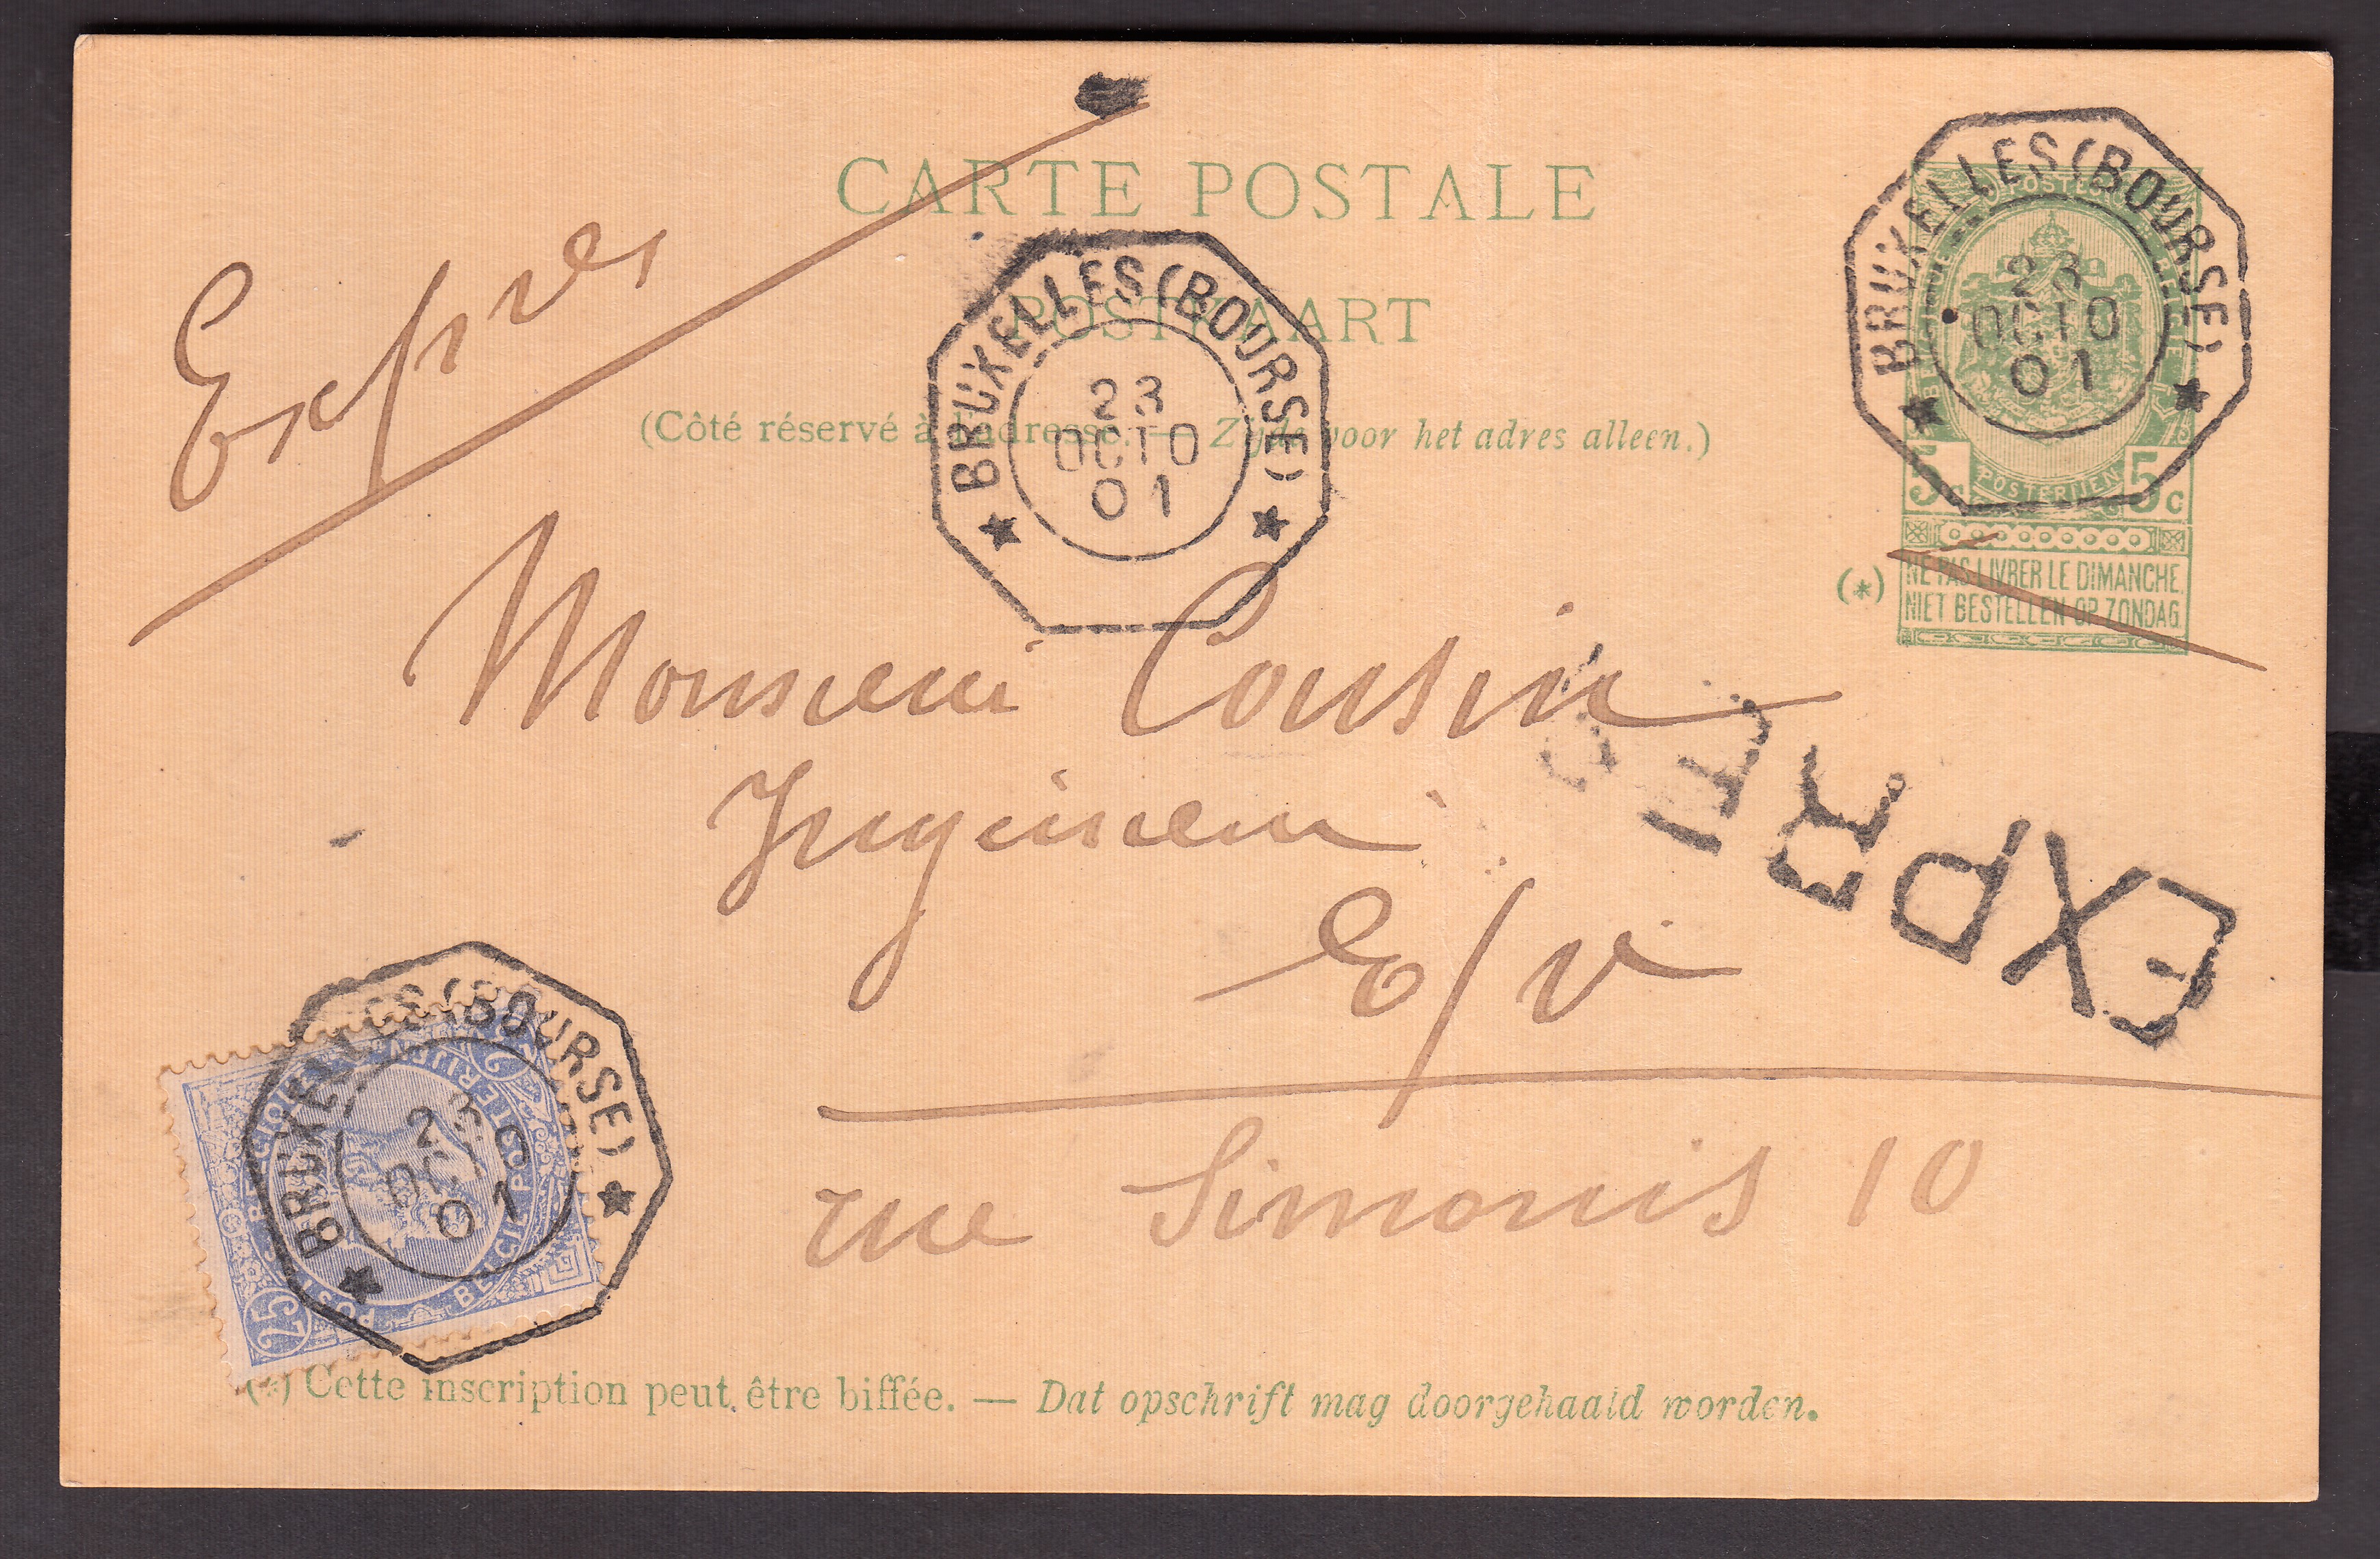 CARTE POSTALE
POSTKAART
(Côté réservé à l'adresse. — Zijde voor het adres alleen.)
Exprès
BRUXELLES (BOURSE)
23
OCTO
01
BRUXELLES (BOURSE)
23
OCTO
01
5c 5c
POSTERIJEN
(*)
NE PAS LIVRER LE DIMANCHE.
NIET BESTELLEN OP ZONDAG
Monsieur Cousin
Ingénieur
EXPRES
E/V
rue Simonis 10
BRUXELLES (BOURSE)
23
OCTO
01
BELGIË POSTERIJEN
25
(*) Cette inscription peut être biffée. — Dat opschrift mag doorgehaald worden.